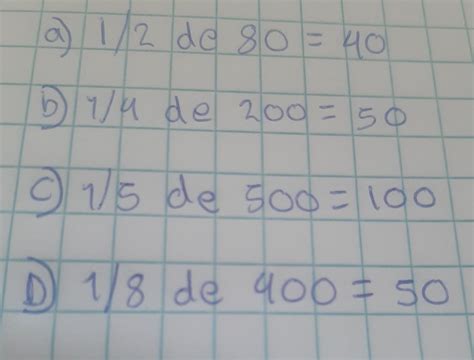 a) 1/2 de 80 = 40
b) 1/4 de 200 = 50
c) 1/5 de 500 = 100
D) 1/8 de 400 = 50